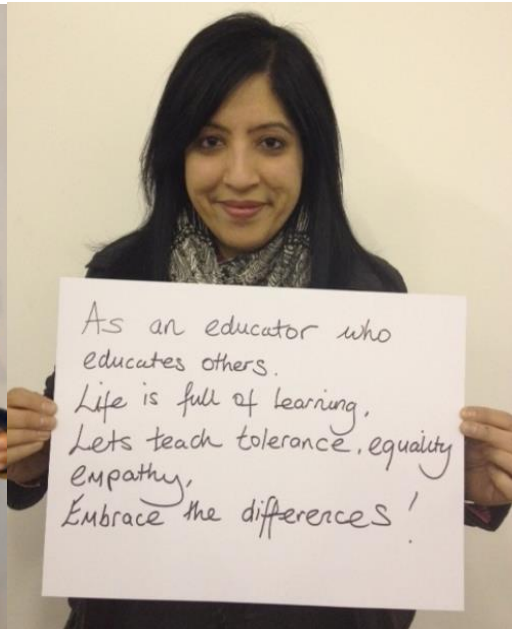 As an educator who
educates others.
Life is full of learning.
Lets teach tolerance, equality
empathy,
Embrace the differences!